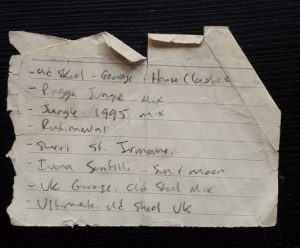 - old Skool - Garage & House Classics
- Ragga Jungle Mix
- Jungle 1995 mix
- Rudimental
- Sherri St. Jermaine.
- Ivona Santilli - Sun & moon
- Uk Garage. Old Skool Mix
- Ultimate old Skool UK